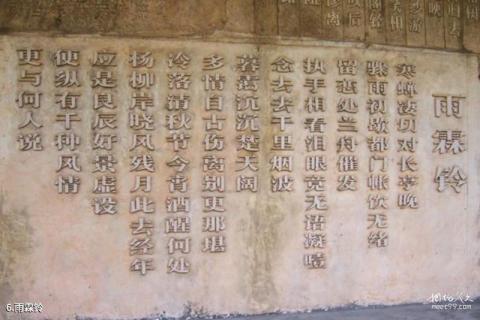 雨霖铃
寒蝉凄切对长亭晚
骤雨初歇都门帐饮无绪
留恋处兰舟催发
执手相看泪眼竟无语凝噎
念去去千里烟波
暮霭沉沉楚天阔
多情自古伤离别更那堪
冷落清秋节今宵酒醒何处
杨柳岸晓风残月此去经年
应是良辰好景虚设
便纵有千种风情
更与何人说
6.雨霖铃
meet99.com